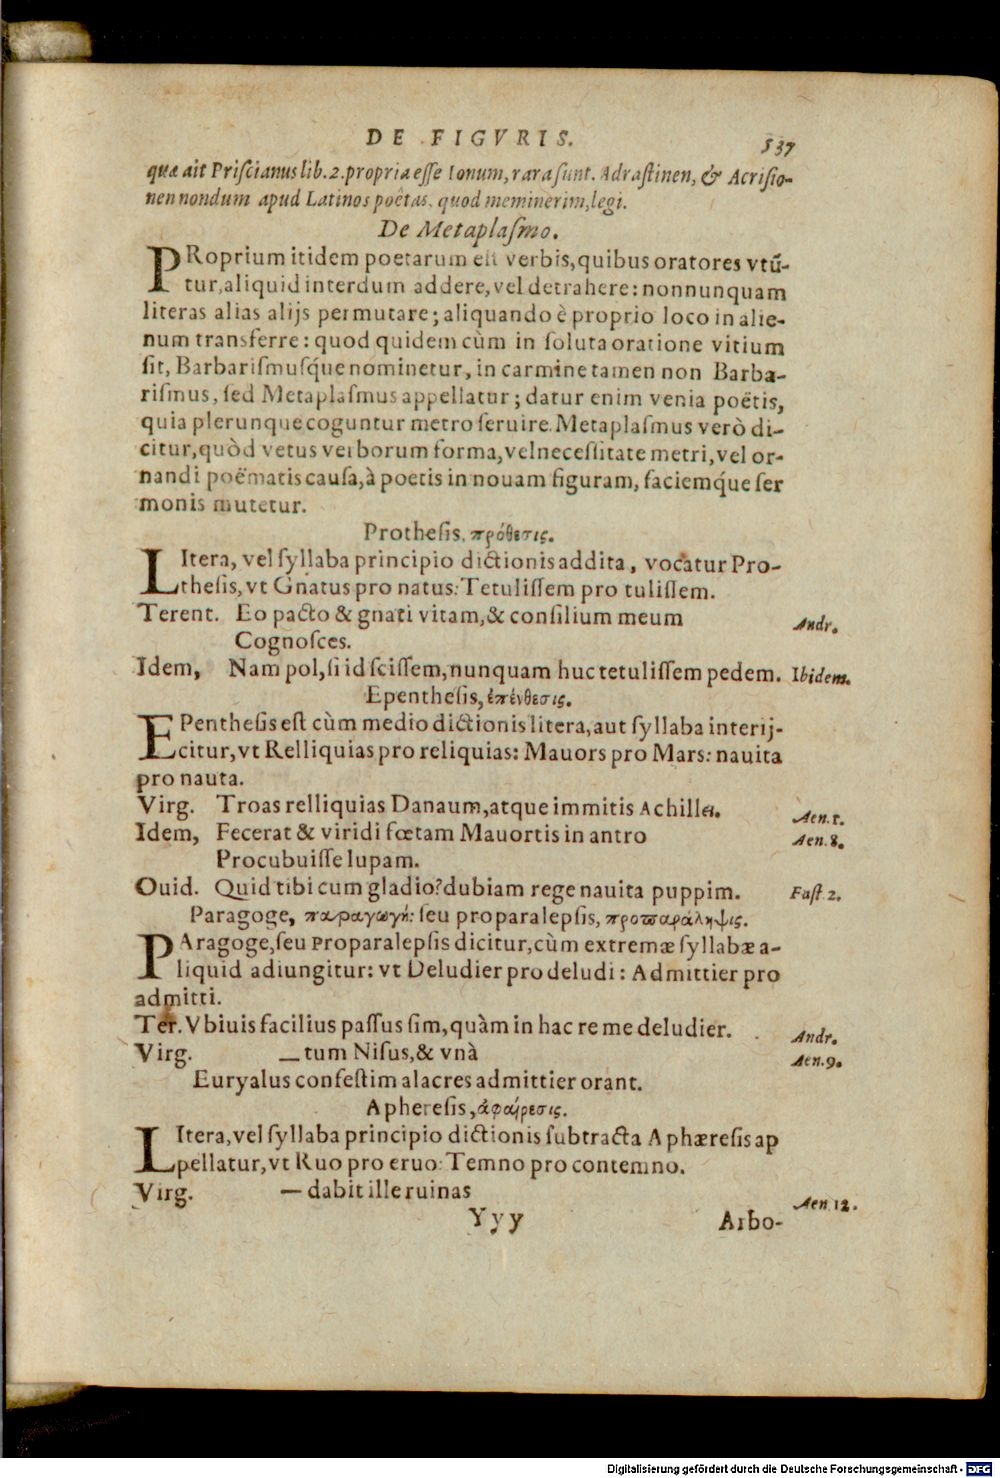 DE FIGVRIS. 537
quæ ait Priſcianus lib. 2. propria eſſe Ionum, rara ſunt. Adraſtinen, & Acriſio-
nen nondum apud Latinos poëtas, quod meminerim, legi.
De Metaplaſmo.
PRoprium itidem poetarum eſt verbis, quibus oratores vtū-
tur, aliquid interdum addere, vel detrahere: nonnunquam
literas alias alijs permutare; aliquando è proprio loco in alie-
num transferre: quod quidem cùm in ſoluta oratione vitium
ſit, Barbariſmuſq́ue nominetur, in carmine tamen non Barba-
riſmus, ſed Metaplaſmus appellatur; datur enim venia poëtis,
quia plerunque coguntur metro ſeruire. Metaplaſmus verò di-
citur, quòd vetus verborum forma, vel neceſſitate metri, vel or-
nandi poëmatis cauſa, à poetis in nouam figuram, faciemq́ue ſer
monis mutetur.
Protheſis, πρόθεσις.
LItera, vel ſyllaba principio dictionis addita, vocatur Pro-
theſis, vt Gnatus pro natus: Tetuliſſem pro tuliſſem.
Terent. Eo pacto & gnati vitam, & conſilium meum Andr.
Cognoſces.
Idem, Nam pol, ſi id ſciſſem, nunquam huc tetuliſſem pedem. Ibidem.
Epentheſis, ἐπένθεσις.
EPentheſis eſt cùm medio dictionis litera, aut ſyllaba interij-
citur, vt Relliquias pro reliquias: Mauors pro Mars: nauita
pro nauta.
Virg. Troas relliquias Danaum, atque immitis Achillei. Aen. 1.
Idem, Fecerat & viridi fœtam Mauortis in antro Aen. 8.
Procubuiſſe lupam.
Ouid. Quid tibi cum gladio? dubiam rege nauita puppim. Faſt. 2.
Paragoge, παραγωγή: ſeu proparalepſis, προπαράληψις.
PAragoge, ſeu Proparalepſis dicitur, cùm extremæ ſyllabæ a-
liquid adiungitur: vt Deludier pro deludi: Admittier pro
admitti.
Ter. Vbiuis facilius paſſus ſim, quàm in hac re me deludier. Andr.
Virg. — tum Niſus, & vnà Aen. 9.
Euryalus confeſtim alacres admittier orant.
Apherеſis, ἀφαίρεσις.
LItera, vel ſyllaba principio dictionis ſubtracta Aphæreſis ap
pellatur, vt Ruo pro eruo: Temno pro contemno.
Virg. — dabit ille ruinas Aen. 12.
Yyy Arbo-
Digitalisierung gefördert durch die Deutsche Forschungsgemeinschaft - DFG